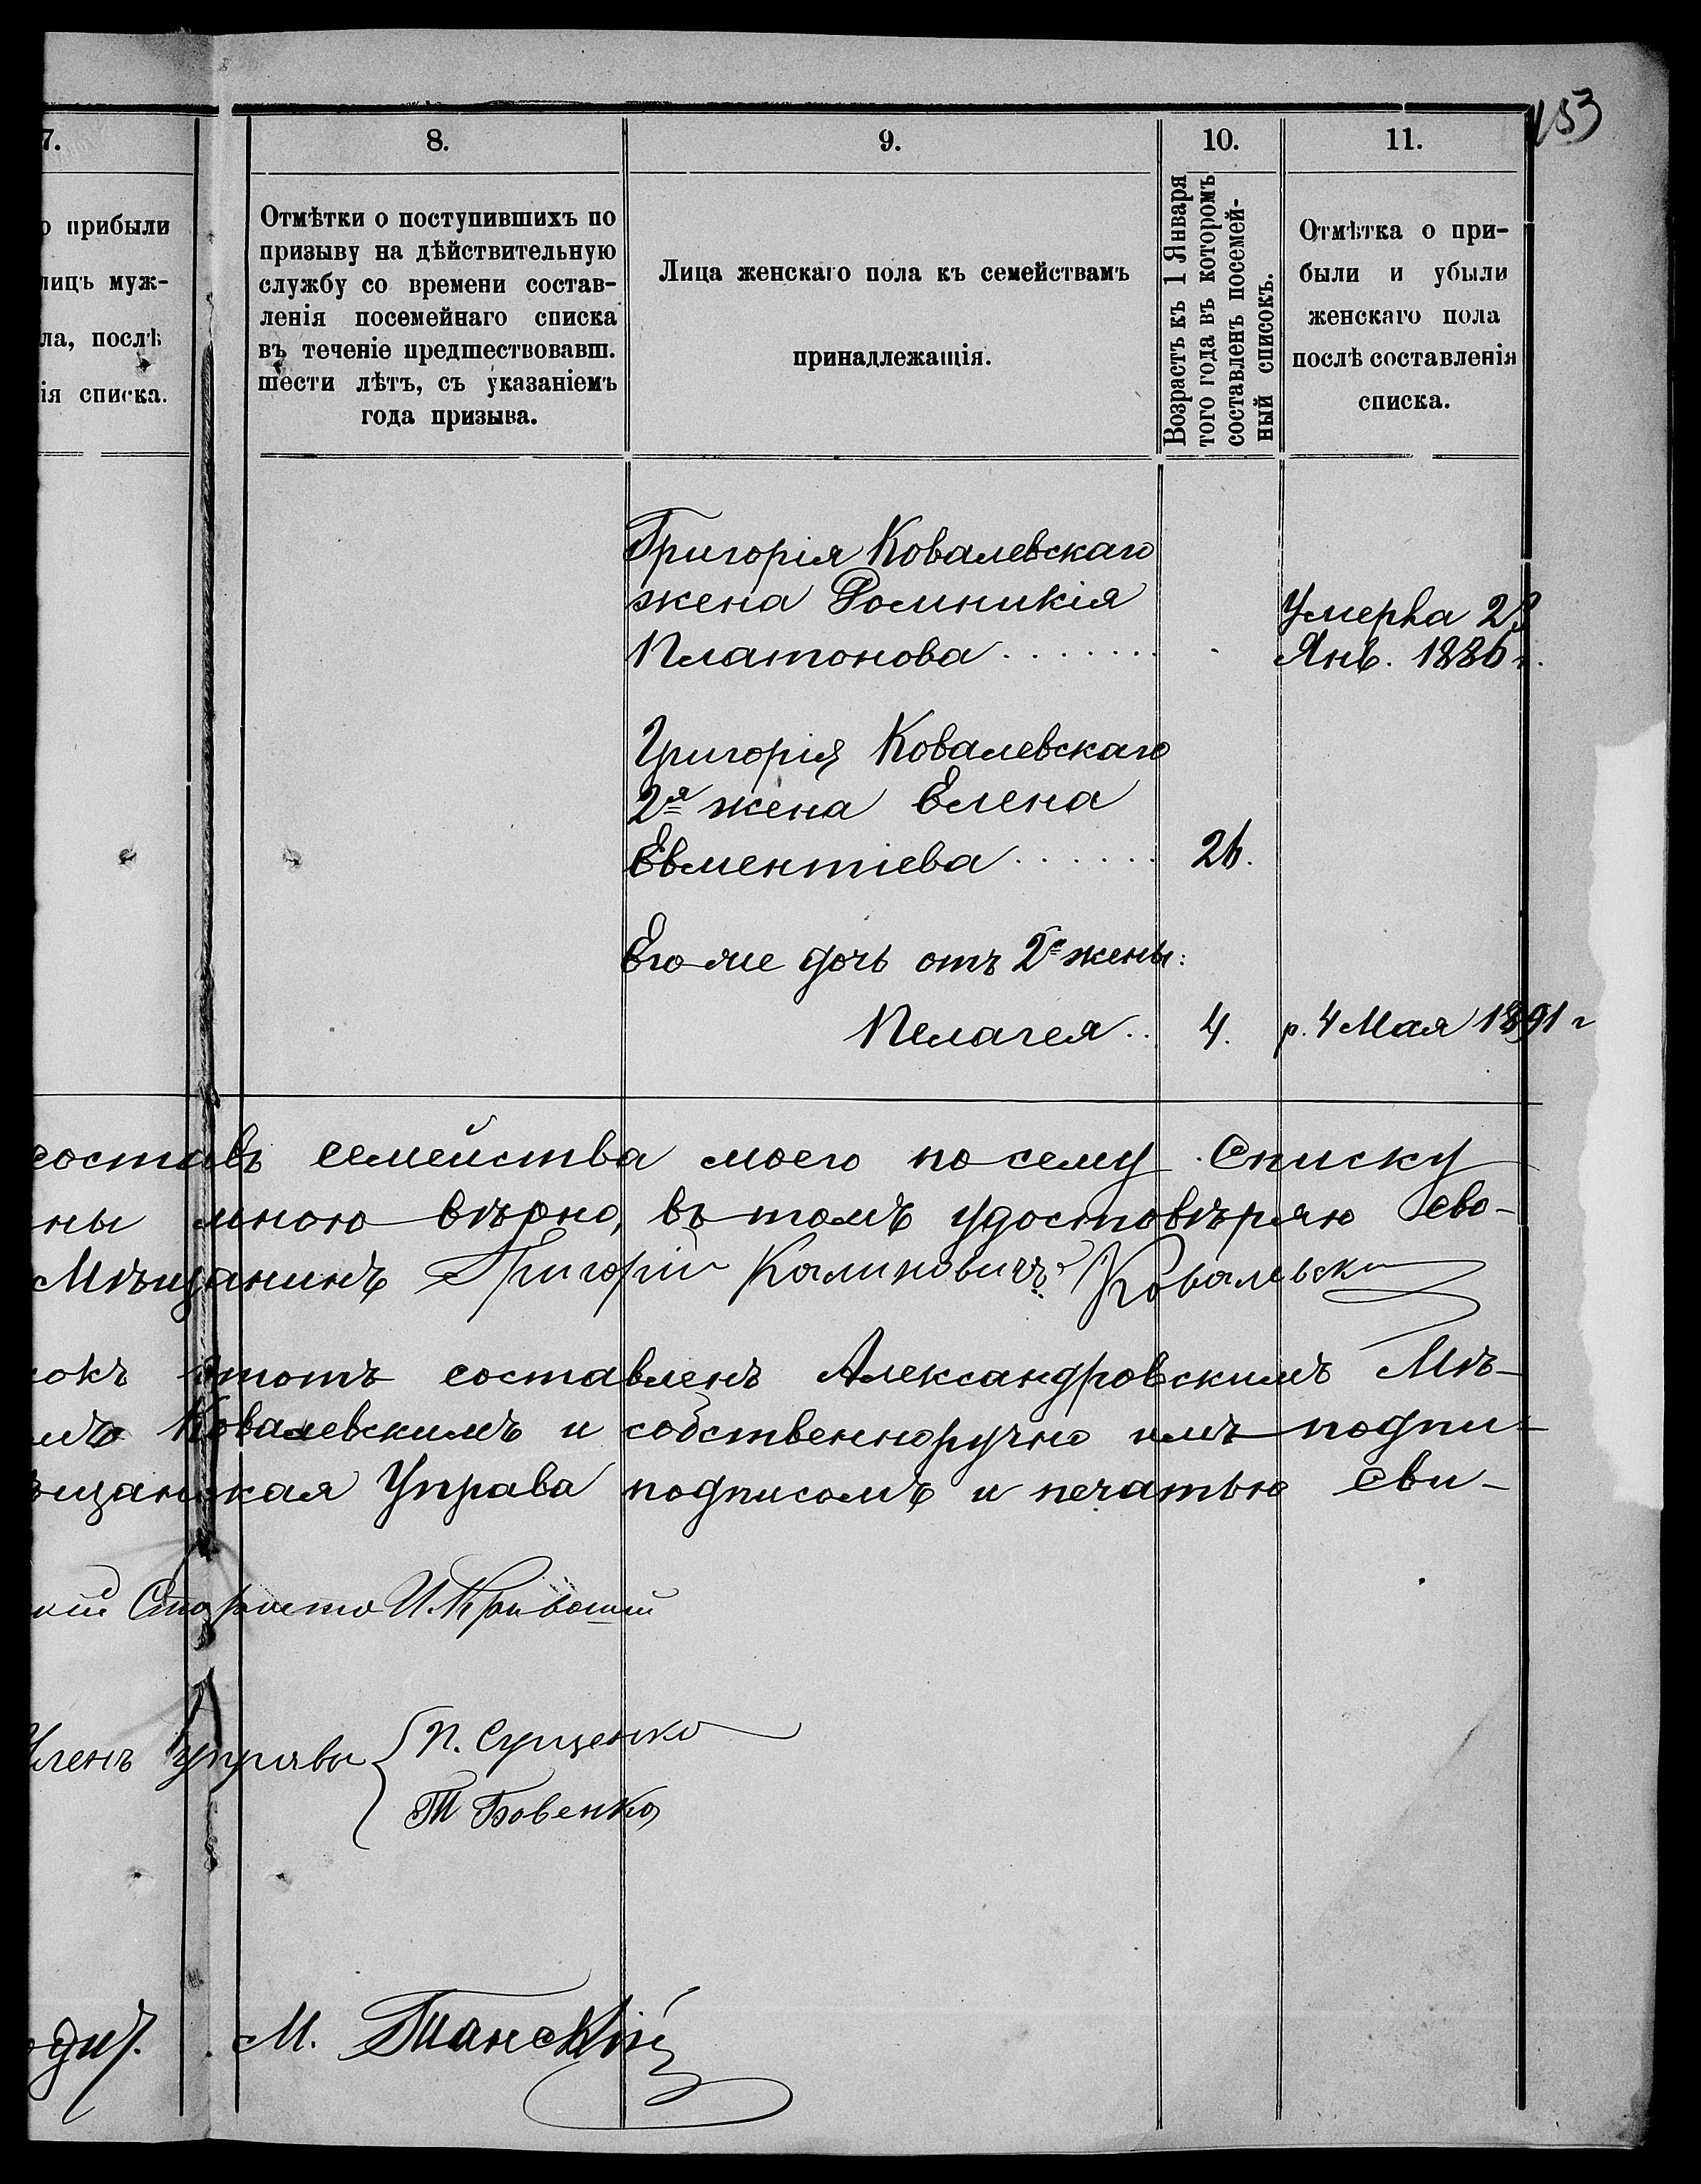 153
7.
8.
9.
10.
11.
о прибыли
лицъ муж-
ла, послѣ
ія списка.
Отмѣтки о поступившихъ по
призыву на дѣйствительную
службу со времени состав-
ленія посемейнаго списка
въ теченіе предшествовавш.
шести лѣтъ, съ указаніемъ
года призыва.
Лица женскаго пола къ семействамъ
принадлежащія.
Возрастъ къ 1 Января
того года въ которомъ
составленъ посемей-
ный списокъ.
Отмѣтка о при-
были и убыли
женскаго пола
послѣ составленія
списка.
Григорія Ковалевскаго
жена Домникія
Платонова . . . . . . .
Умерла 23
Янв. 1886 г.
Григорія Ковалевскаго
2я жена Елена
Евментіева . . . . . . 26.
Его же дочь отъ 2й жены:
Пелагея . . 4. р. 4 Мая 1891 г
составъ семейства моего по сему Списку
ны мною вѣрно, въ томъ удостовѣряю сво-
Мѣщанинъ Григорій Калиновичъ Ковалевски
окъ этотъ составленъ Александровскимъ Мѣ-
мъ Ковалевскимъ и собственноручно имъ подпи-
ѣщанская Управа подписомъ и печатью сви-
кій Староста И.
Членъ Управы П. Сущенко
Т Бовенко
М. Танскій